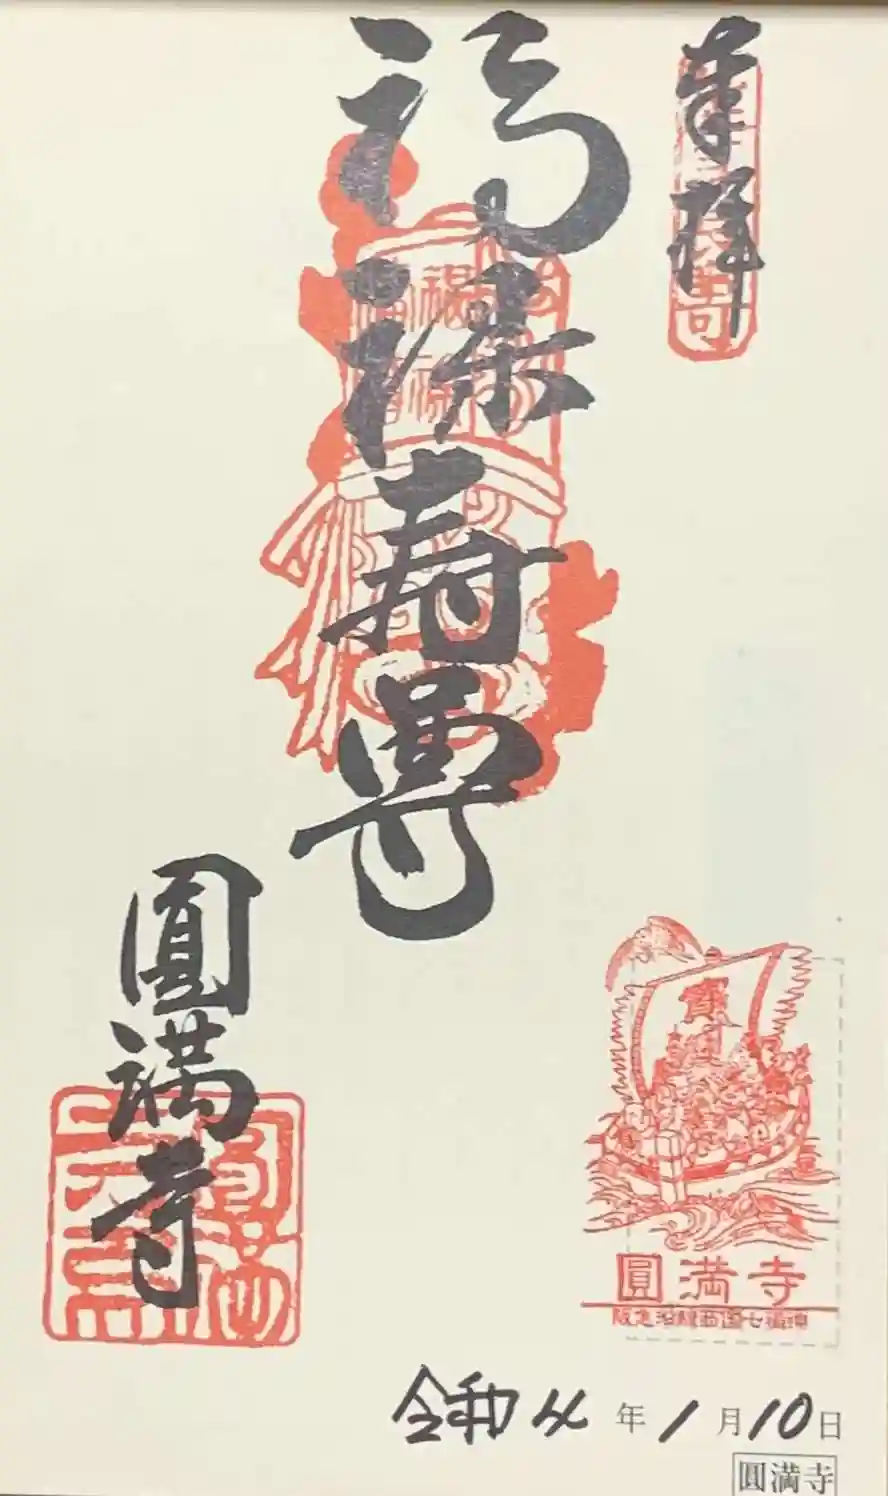 奉拝
福禄寿尊
圓満寺
寳
圓満寺
阪急沿線西国七福神
令和4年1月10日
圓満寺